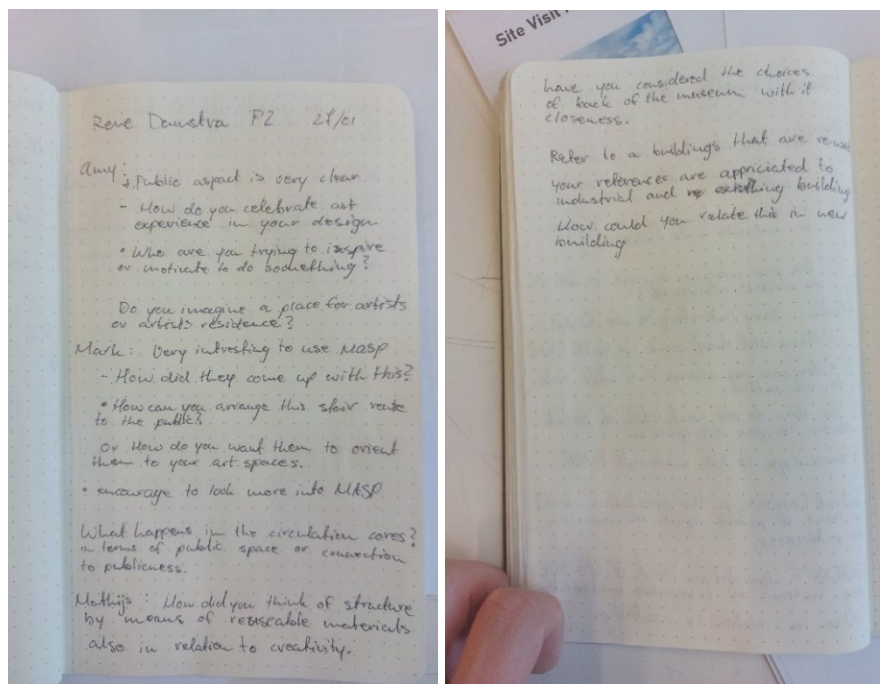 Rene Damstra P2 27/01
Amy:
+ Public aspect is very clear
- How do you celebrate art
experience in your design
• Who are you trying to inspire
or motivate to do something?
Do you imagine a place for artists
or artists residence?
Mark: Very intresting to use MASP
- How did they come up with this?
• How can you arrange this stair route
to the public?
Or How do you want them to orient
them to your art spaces.
• encourage to look more into MASP
What happens in the circulation cores?
in terms of public space or connection
to publicness.
Mathijs: How did you think of structure
by means of reuseable materials
also in relation to creativity.
Site Visit
have you considered the choices
of back of the museum with it
closeness.
Refer to a buildings that are re-use
your references are appriciated to
industrial and existing building
How could you relate this in new
building